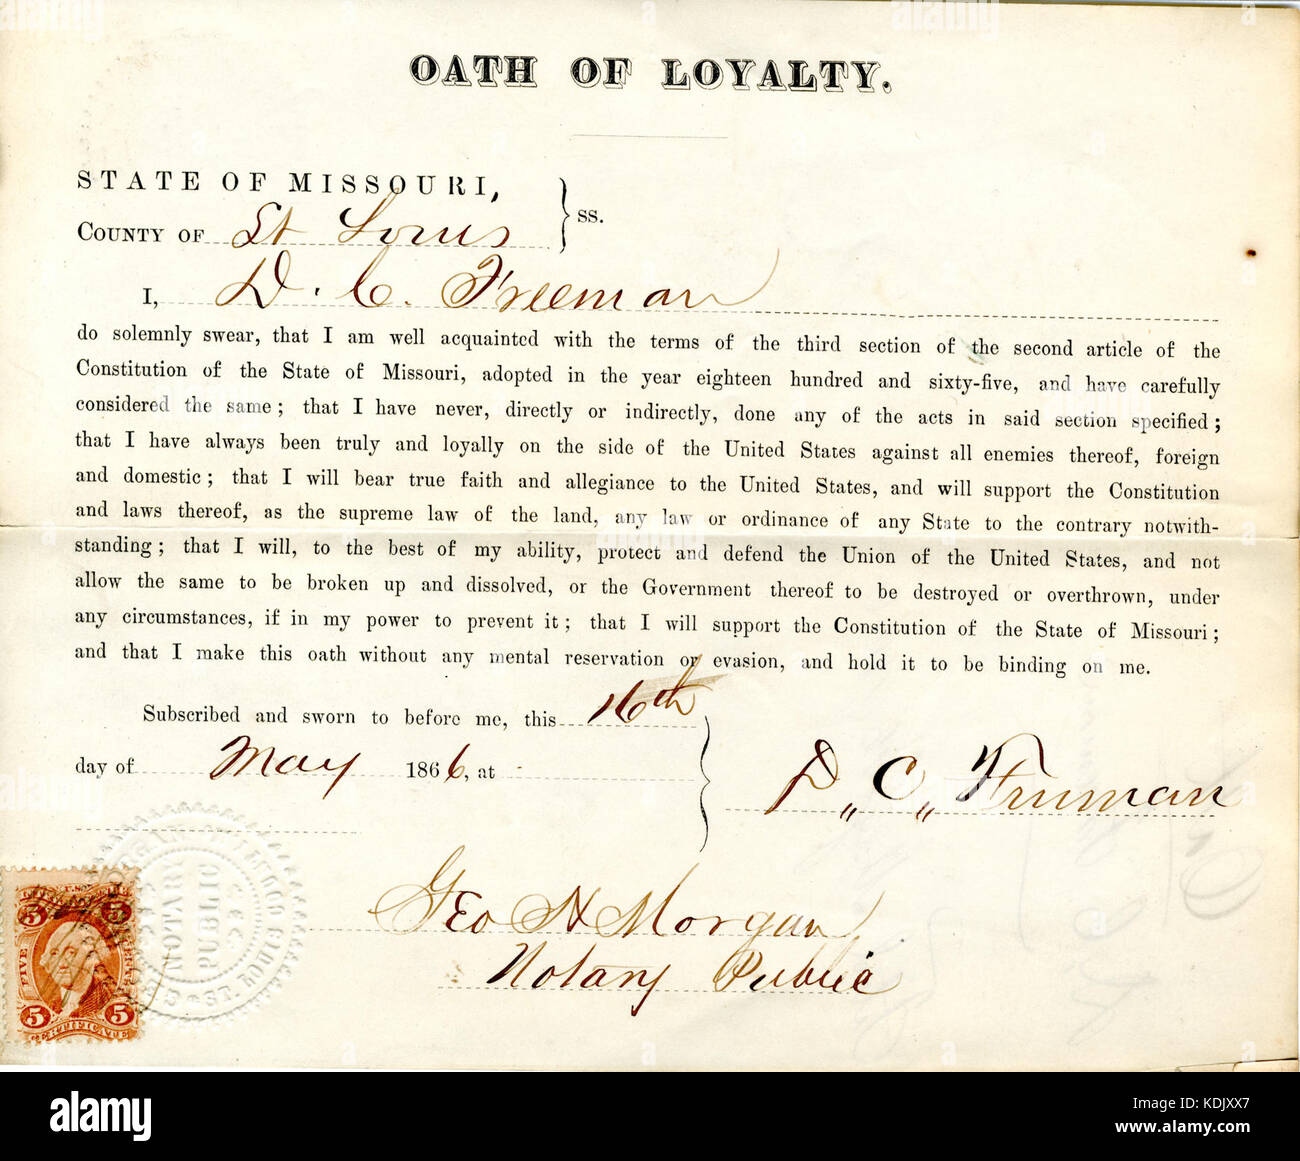 OATH OF LOYALTY.
STATE OF MISSOURI,
COUNTY OF St Louis } ss.
I, D. C. Freeman
do solemnly swear, that I am well acquainted with the terms of the third section of the second article of the
Constitution of the State of Missouri, adopted in the year eighteen hundred and sixty-five, and have carefully
considered the same; that I have never, directly or indirectly, done any of the acts in said section specified;
that I have always been truly and loyally on the side of the United States against all enemies thereof, foreign
and domestic; that I will bear true faith and allegiance to the United States, and will support the Constitution
and laws thereof, as the supreme law of the land, any law or ordinance of any State to the contrary notwith-
standing; that I will, to the best of my ability, protect and defend the Union of the United States, and not
allow the same to be broken up and dissolved, or the Government thereof to be destroyed or overthrown, under
any circumstances, if in my power to prevent it; that I will support the Constitution of the State of Missouri;
and that I make this oath without any mental reservation or evasion, and hold it to be binding on me.
Subscribed and sworn to before me, this 16th
day of May 1866, at
D. C. Freeman
Geo H Morgan
Notary Public
NOTARY
PUBLIC
ST. LOUIS
5 5
FIVE
5 5
CERTIFICATE
alamy
Image ID: KDJXX7
www.alamy.com